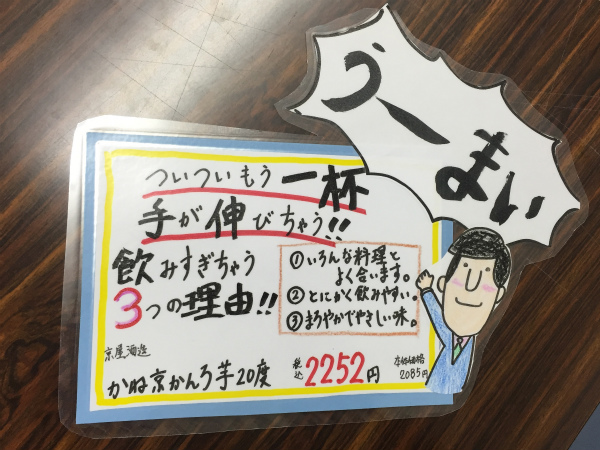 うーまい
ついついもう一杯
手が伸びちゃう!!
飲みすぎちゃう
3つの理由!!
①いろんな料理と
よく合います。
②とにかく飲みやすい。
③まろやかでやさしい味。
京屋酒造
かね京かんろ芋20度
税込2252円
本体価格
2085円